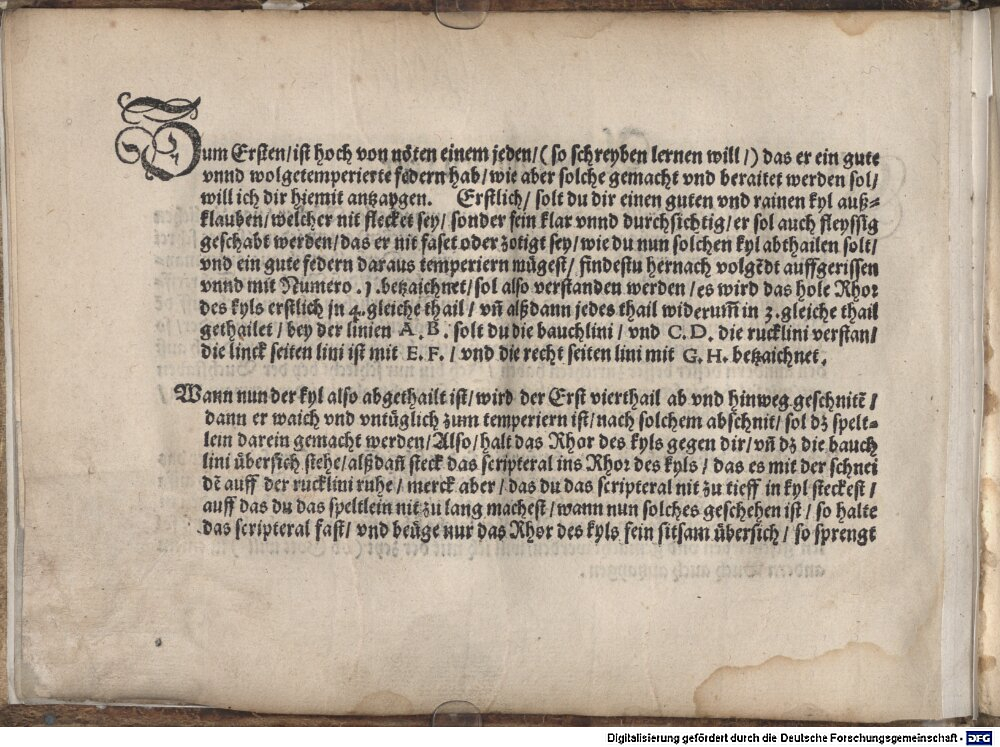 Zum Ersten/ist hoch von nöten einem jeden/(so schreyben lernen will/) das er ein gute
vnnd wolgetemperierte federn hab/wie aber solche gemacht vnd beraitet werden sol/
will ich dir hiemit antzaygen. Erstlich/ solt du dir einen guten vnd rainen kyl auß⸗
klauben/welcher nit flecket sey/ sonder fein klar vnnd durchsichtig/er sol auch fleyssig
geschabt werden/das er nit faset oder zotigt sey/wie du nun solchen kyl abthailen solt/
vnd ein gute federn daraus temperiern mügest/ findestu hernach volgẽdt auffgerissen
vnnd mit Numero .1. betzaichnet/sol also verstanden werden/es wird das hole Rhor
des kyls erstlich jn 4. gleiche thail/ vñ alßdann jedes thail widerum̃ in 3. gleiche thail
gethailet/ bey der linien A. B. solt du die bauchlini/ vnd C. D. die rucklini verstan/
die linck seiten lini ist mit E. F. / vnd die recht seiten lini mit G. H. betzaichnet.
Wann nun der kyl also abgethailt ist/wird der Erst vierthail ab vnd hinweg geschnitẽ/
dann er waich vnd vntüglich zum temperiern ist/nach solchem abschnit/ sol dz spelt⸗
lein darein gemacht werden/Also/halt das Rhor des kyls gegen dir/vñ dz die bauch
lini übersich stehe/alßdañ steck das scripteral ins Rhor des kyls/das es mit der schnei
dẽ auff der rucklini ruhe/ merck aber/das du das scripteral nit zu tieff in kyl steckest/
auff das du das speltlein nit zu lang machest/wann nun solches geschehen ist/ so halte
das scripteral fast/ vnd beüge nur das Rhor des kyls fein sitsam übersich/ so sprengt
Digitalisierung gefördert durch die Deutsche Forschungsgemeinschaft - DFG